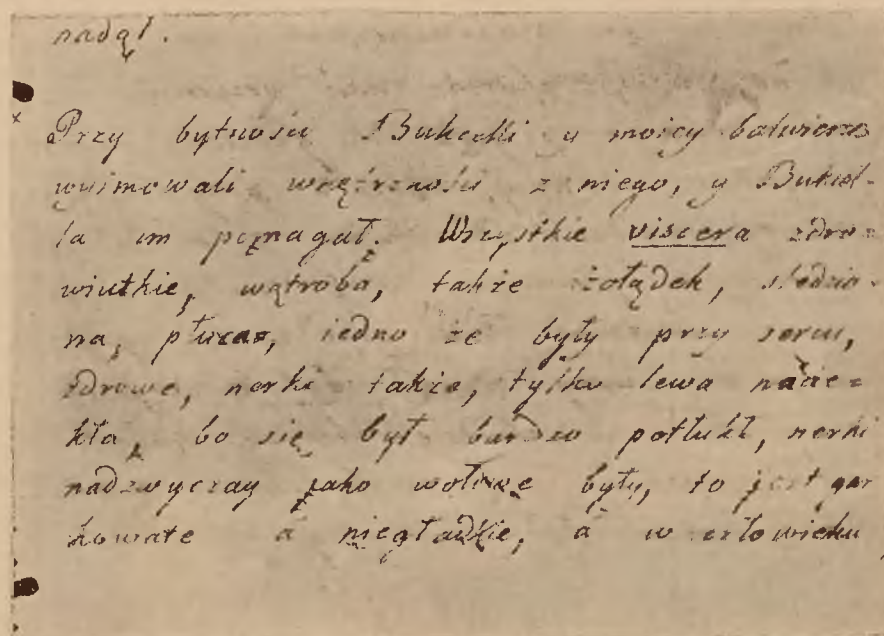 nadął.
Przy bytności Bukiecki y moiey balwierze
wyimowali wnętrzności z niego, y Bukiel-
la im pomagał. Wszystkie viscera zdro=
wiutkie, wątroba, także żołądek, śledzio-
na, płuca, iedno że były przy sercu,
zdrowe, nerki także, tylko lewa nacie=
kła, bo się był bardzo potłukł, nerki
nadzwyczay jako wołowe były, to jest gar
kowate a niegładkie, a w człowieku